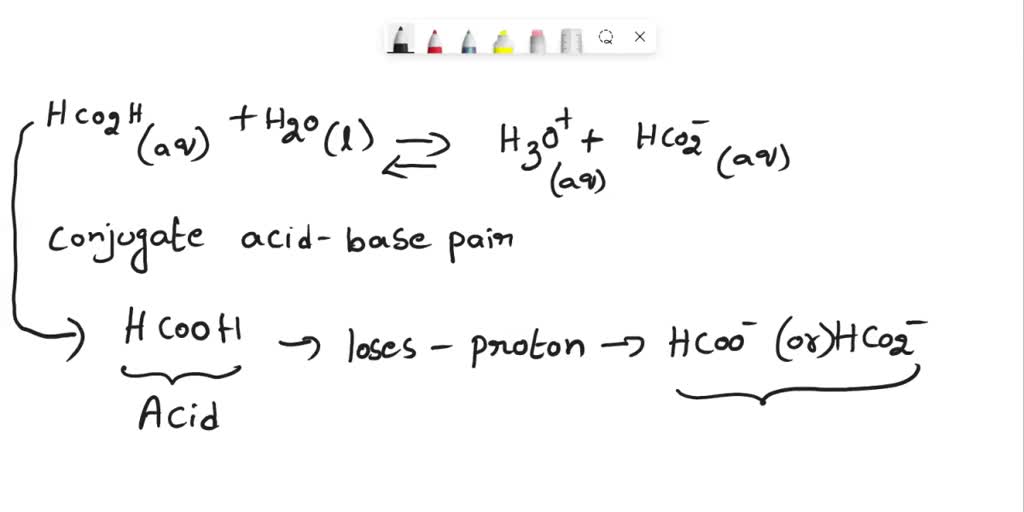 HCO2H(aq) + H2O(l) ⇌ H3O+(aq) + HCO2-(aq)
Conjugate acid-base pair
HCOOH → loses - proton → HCOO- (or) HCO2-
Acid